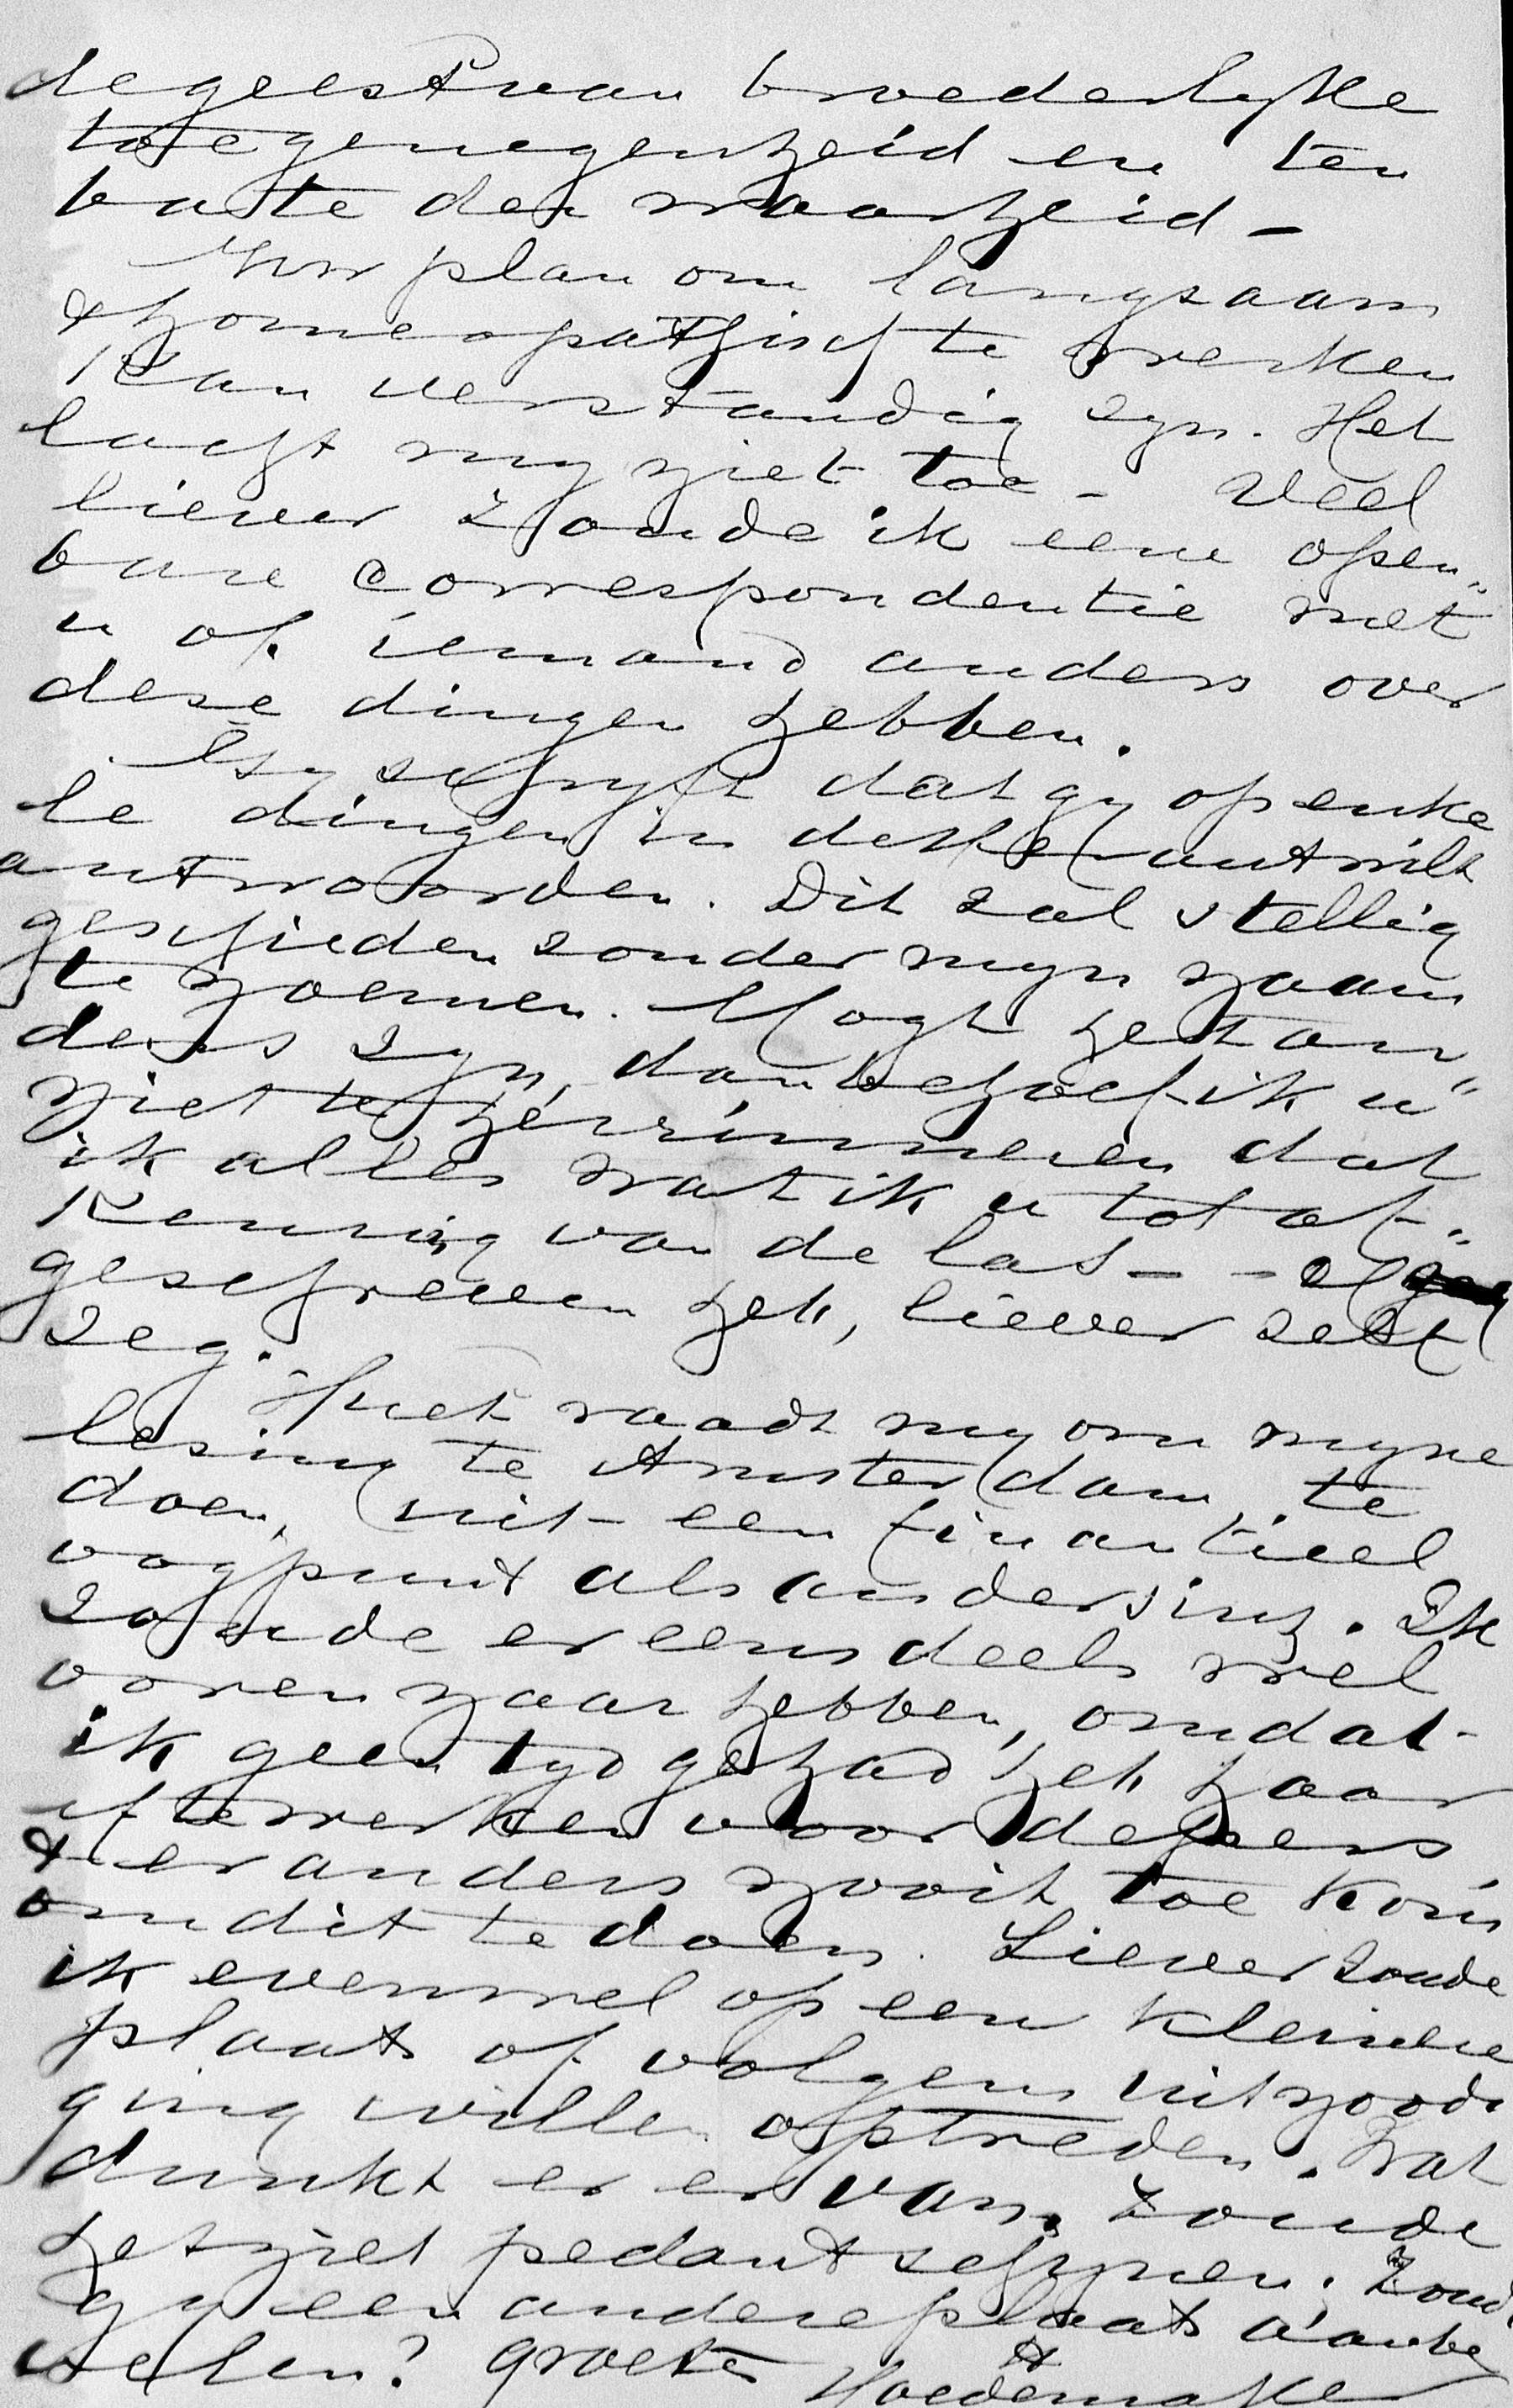 de geest van broederlyke
toegenegenheid en ten
bate der waarheid –
Uw plan om langzaam
& homeopathisch te werken
kan verstandig zyn. Het
lacht my niet toe – Veel
liever zoude ik eene open„
bare correspondentie met
u of iemand anders over
deze dingen hebben.
Gy schryft dat gy op enke
le dingen in de Heraut wilt
antwoorden. Dit zal stellig
geschieden zonder myn naam
te noemen. Mogt het an„
ders zyn, dan behoef ik u
niet te herinneren dat
ik alles wat ik u tot af„
keuring van de las –
geschreven heb, liever zelf
zeg.
Huet raadt my om myne
lezing te Amsterdam te
doen, uit een finantieel
oogpunt als anderzins. Ik
zoude er eensdeels wel
ooren naar hebben, omdat
ik geen tyd gehad heb haar
af te werken voor de pers
& er anders nooit toe kom
om dit te doen. Liever zoude
ik evenwel op een kleinere
plaats of volgens uitnoodi
ging willen optreden. Wat
dunkt er u van. Zoude
het niet pedant schynen. Zoudt
gy een andere plaats aanbe
velen? Groete
tt
Hoedemaker